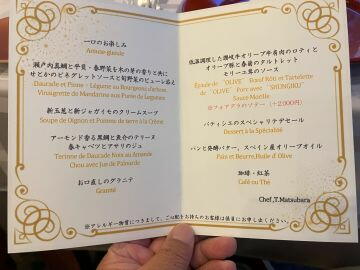 一口のお楽しみ
Amuse-gueule
瀬戸内真鯛と平貝・春野菜を木の芽の香りと共に
せとかのビネグレットソースと旬野菜のピューレ添え
Daurade et Pinne・Légume au Bourgeons d'arbres
Vinaigrette de Mandarine aux Purée de Legumes
新玉葱と新ジャガイモのクリームスープ
Soupe de Oignon et Pomme de terre à la Crème
アーモンド香る黒鯛と
のテリーヌ
春キャベツとアサリのジュ
Terrine de Daurade Noix au Amande
Chou avec Jus de Palourde
お口直しのグラニテ
Granité
低温調理した讃岐牛オリーブ牛肩肉のロティと
オリーブ豚と春菊のタルトレット
モリーユ茸のソース
Épaule de "OLIVE" Bœuf Rôti et Tartelette
de "OLIVE" Porc avec "SHUNGIKU"
Sauce Morille
※フォアグラのソテー (+2,000円)
パティシエのスペシャリテデセール
Dessert à la Spécialité
パンと発酵バター、スペイン産オリーブオイル
Pain et Beurre,Huile d' Olive
珈琲・紅茶
Café ou Thé
Chef ,T.Matsubara
※アレルギー物質につきまして、ご心配をお持ちのお客様は係員にお申し出ください。